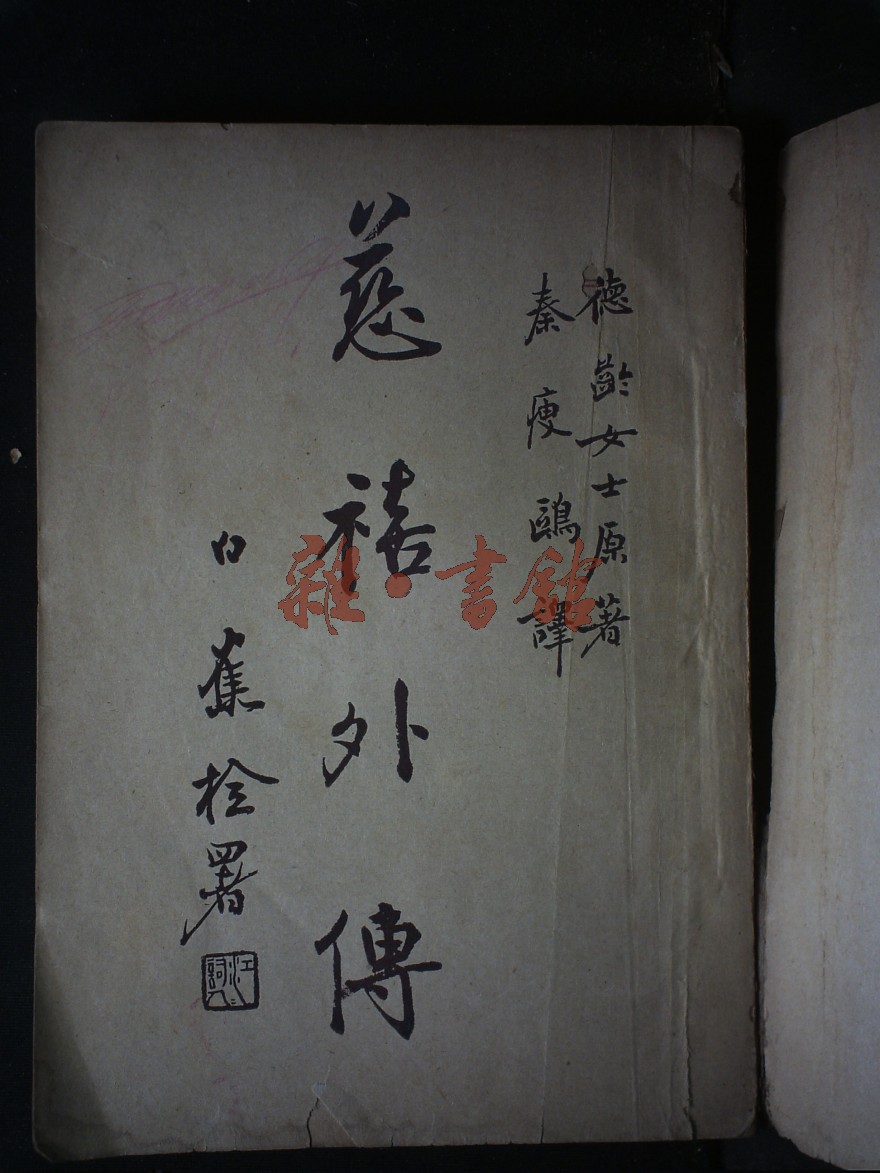 德齡女士原著
秦瘦鷗譯
慈禧外傳
白蕉拴署
雜·書館